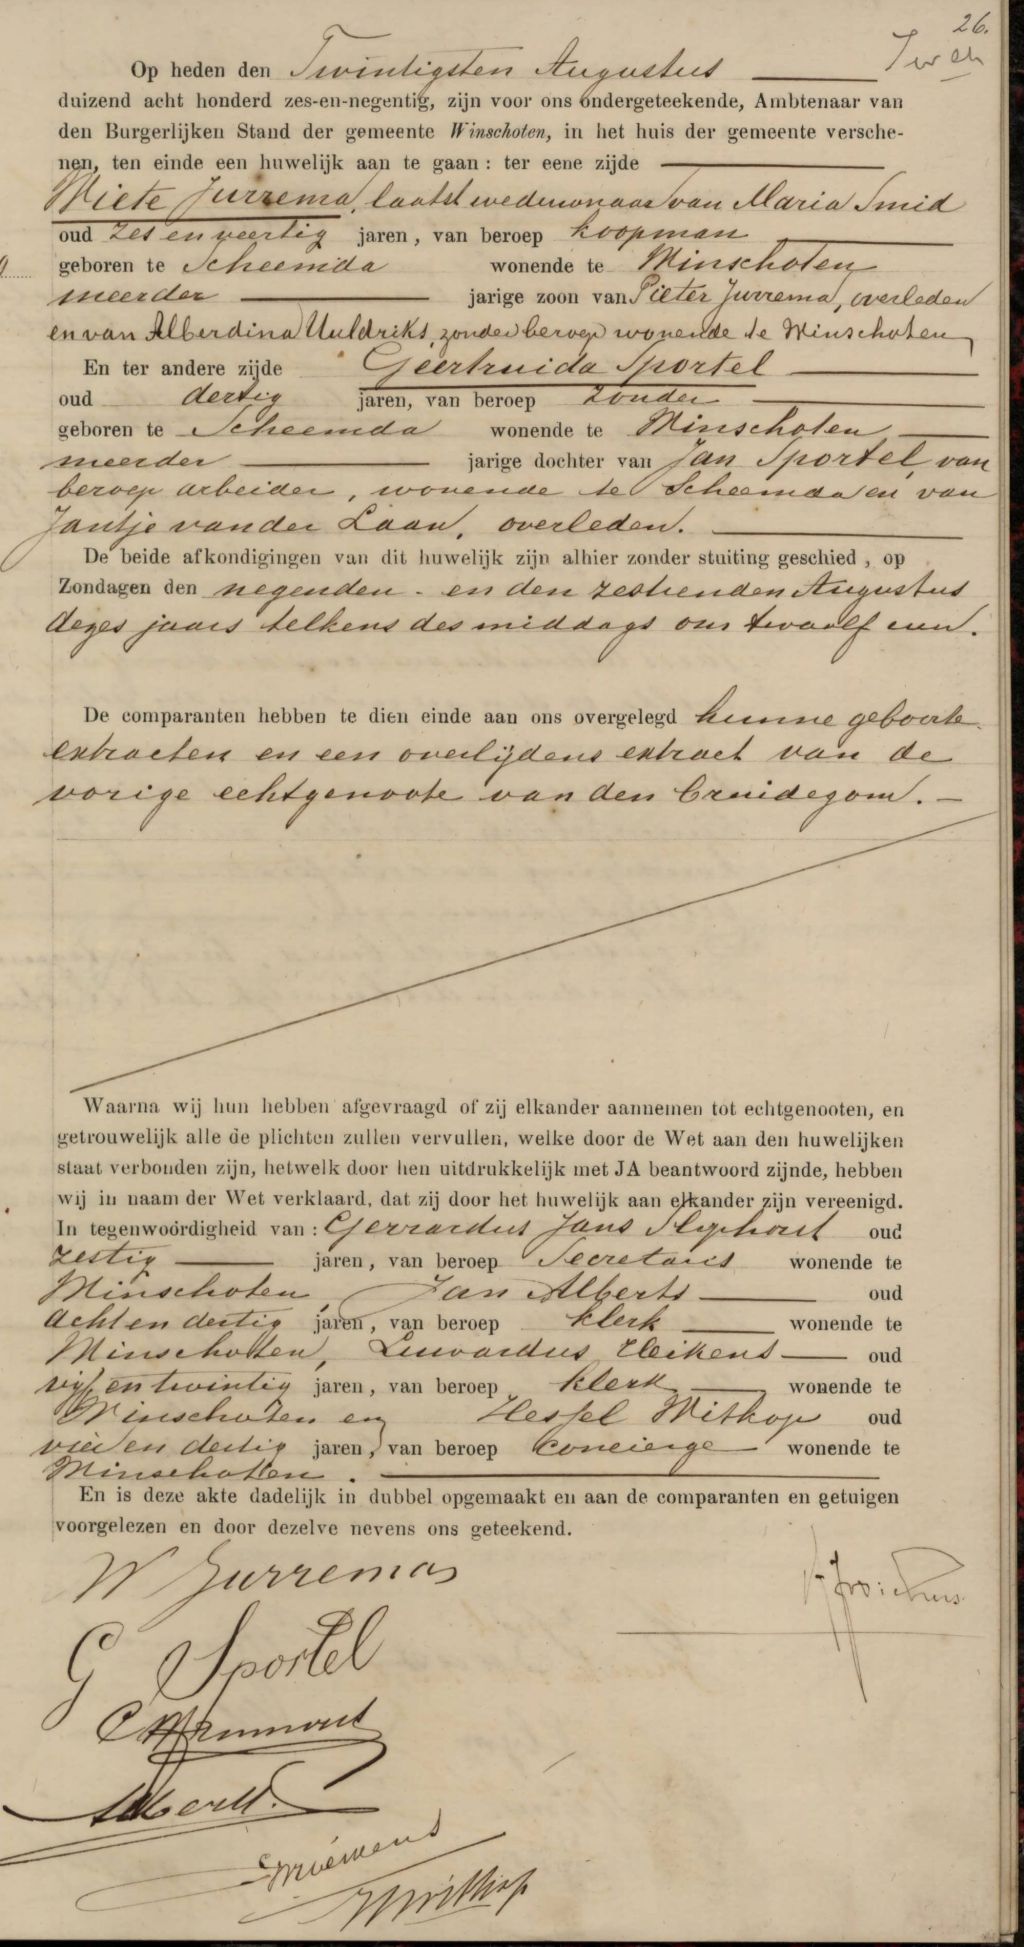 26.
Op heden den Twintigsten Augustus
duizend acht honderd zes-en-negentig, zijn voor ons ondergeteekende, Ambtenaar van
den Burgerlijken Stand der gemeente Winschoten, in het huis der gemeente versche-
nen, ten einde een huwelijk aan te gaan: ter eene zijde
Wiete Jurrema, laatst weduwnaar van Maria Smid
oud zes en veertig jaren, van beroep koopman
geboren te Scheemda wonende te Winschoten
meerder jarige zoon van Pieter Jurrema, overleden
en van Alberdina Uuldriks, zonder beroep wonende te Winschoten
En ter andere zijde Geertruida Sportel
oud dertig jaren, van beroep zonder
geboren te Scheemda wonende te Winschoten
meerder jarige dochter van Jan Sportel, van
beroep arbeider, wonende te Scheemda en van
Jantje van der Laan, overleden.
De beide afkondigingen van dit huwelijk zijn alhier zonder stuiting geschied, op
Zondagen den negenden en den zestienden Augustus
dezes jaars telkens des middags om twaalf uur.
De comparanten hebben te dien einde aan ons overgelegd hunne geboorte
extracten en een overlijdens extract van de
vorige echtgenoote van den bruidegom.
Waarna wij hun hebben afgevraagd of zij elkander aannemen tot echtgenooten, en
getrouwelijk alle de plichten zullen vervullen, welke door de Wet aan den huwelijken
staat verbonden zijn, hetwelk door hen uitdrukkelijk met JA beantwoord zijnde, hebben
wij in naam der Wet verklaard, dat zij door het huwelijk aan elkander zijn vereenigd.
In tegenwoordigheid van: Gerrardus Jans oud
zestig jaren, van beroep Secretaris wonende te
Winschoten, Jan Alberts oud
acht en dertig jaren, van beroep klerk wonende te
Winschoten, Luwardus Heikens oud
vijf en twintig jaren, van beroep klerk wonende te
Winschoten en Hessel Witkop oud
vier en dertig jaren, van beroep concierge wonende te
Winschoten.
En is deze akte dadelijk in dubbel opgemaakt en aan de comparanten en getuigen
voorgelezen en door dezelve nevens ons geteekend.
W Jurrema
G Sportel
Alberts.
HWitkop